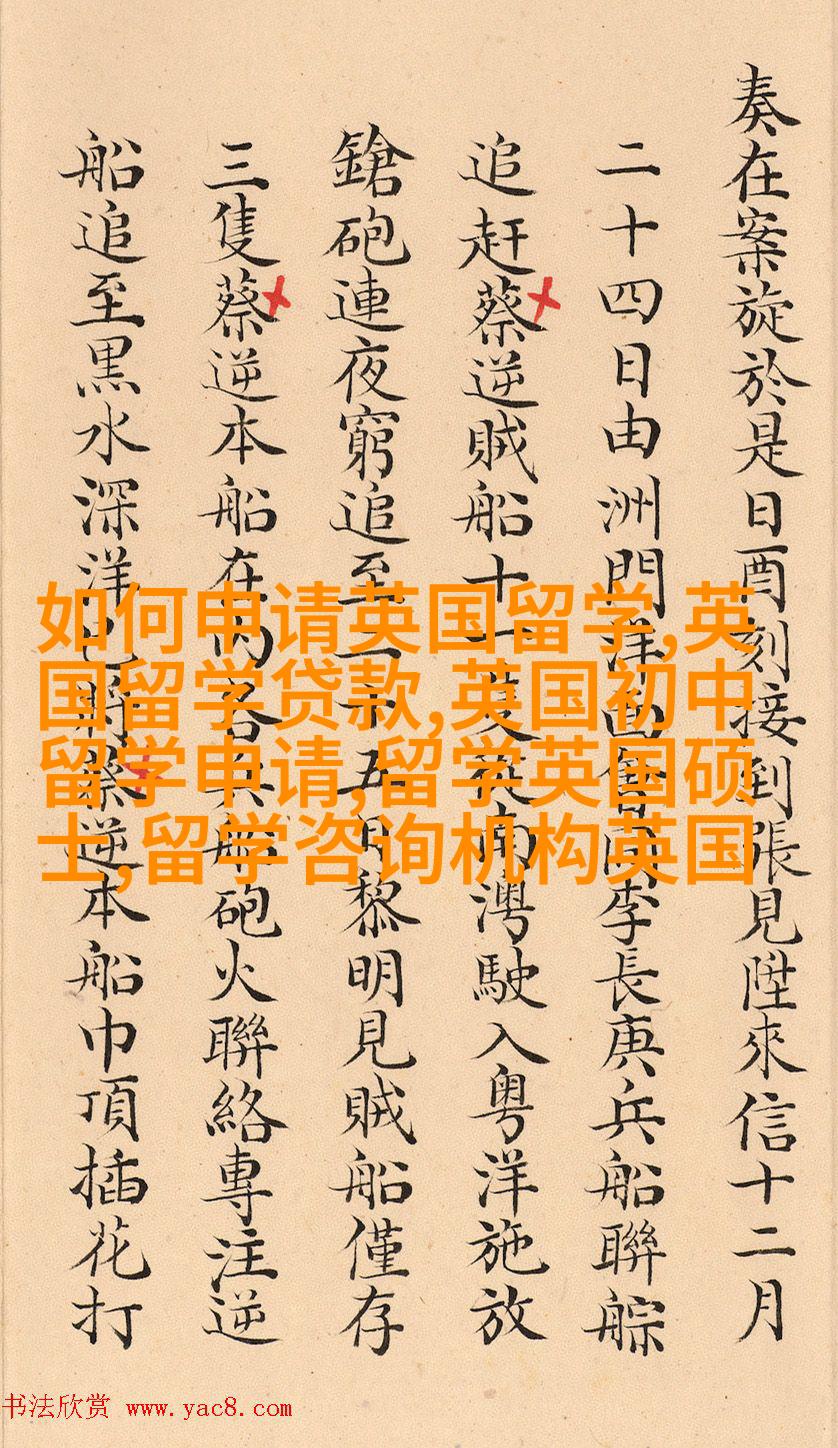 奏在案旋於是日酉刻接到張見陞來信十二月
二十四日由洲門洋面會同李長庚兵船聯䑸
追赶蔡逆賊船十一隻從南灣駛入粤洋施放
鎗砲連夜窮追至二十五日黎明見賊船僅存
三隻蔡逆本船在內各兵船砲火聯絡專注逆
船追至黒水深洋已將蔡逆本船巾頂插花打
如何申请英国留学,英
国留学贷款,英国初中
留学申请,留学英国硕
士,留学咨询机构英国
书法欣赏 www.yac8.com